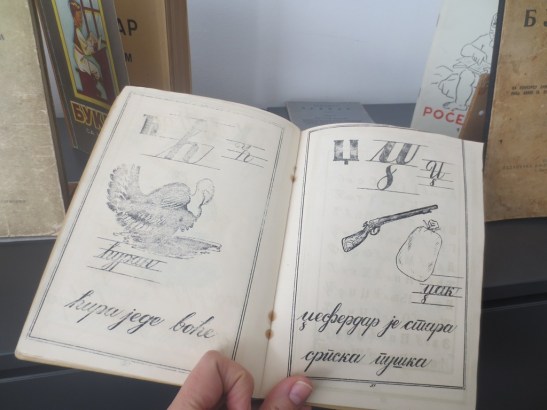 АР
БУКВ
РОСЕ
Ћ Ћ ћ
ћуран
ћира једе воће
Џ Џ џ
џак
џефердар је стара
српска пушка